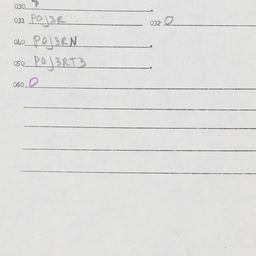 030
031 POJ3R 032 O
040 POJ3RN
050 POJ3RT3
060 O